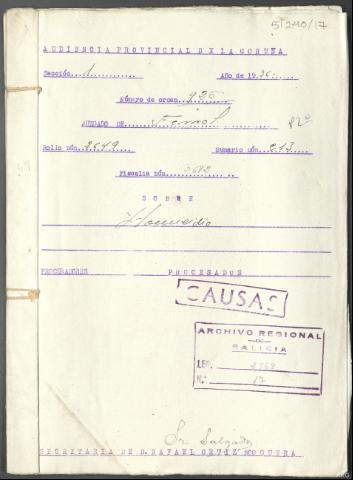 51240/17
AUDIENCIA PROVINCIAL DE LA CORUÑA
Sección...1............ Año de 19.36......
Número de orden...926.......
JUZGADO DE....Ferrol......... P2º
Rollo núm..2649.......... Sumario núm..213......
Fiscalía núm..............
SOBRE
Homicidio
PROCURADORES PROCESADOS
CAUSAS
ARCHIVO REGIONAL
DE
GALICIA
LEG.
N.: 17
Sr Salgado
SECRITARIA DE D. RAFAEL ORTIZ NOGUERA